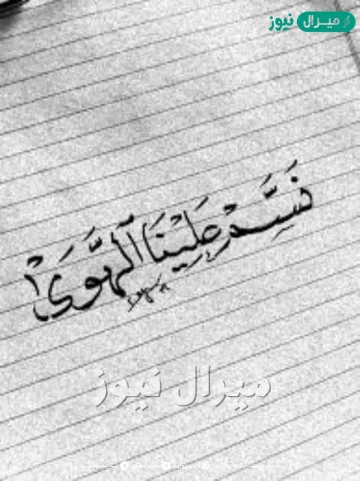 ميرال نيوز
نَسَّمْ عَلَيْنَا ٱلْهَوَىٰ
ميرال نيوز